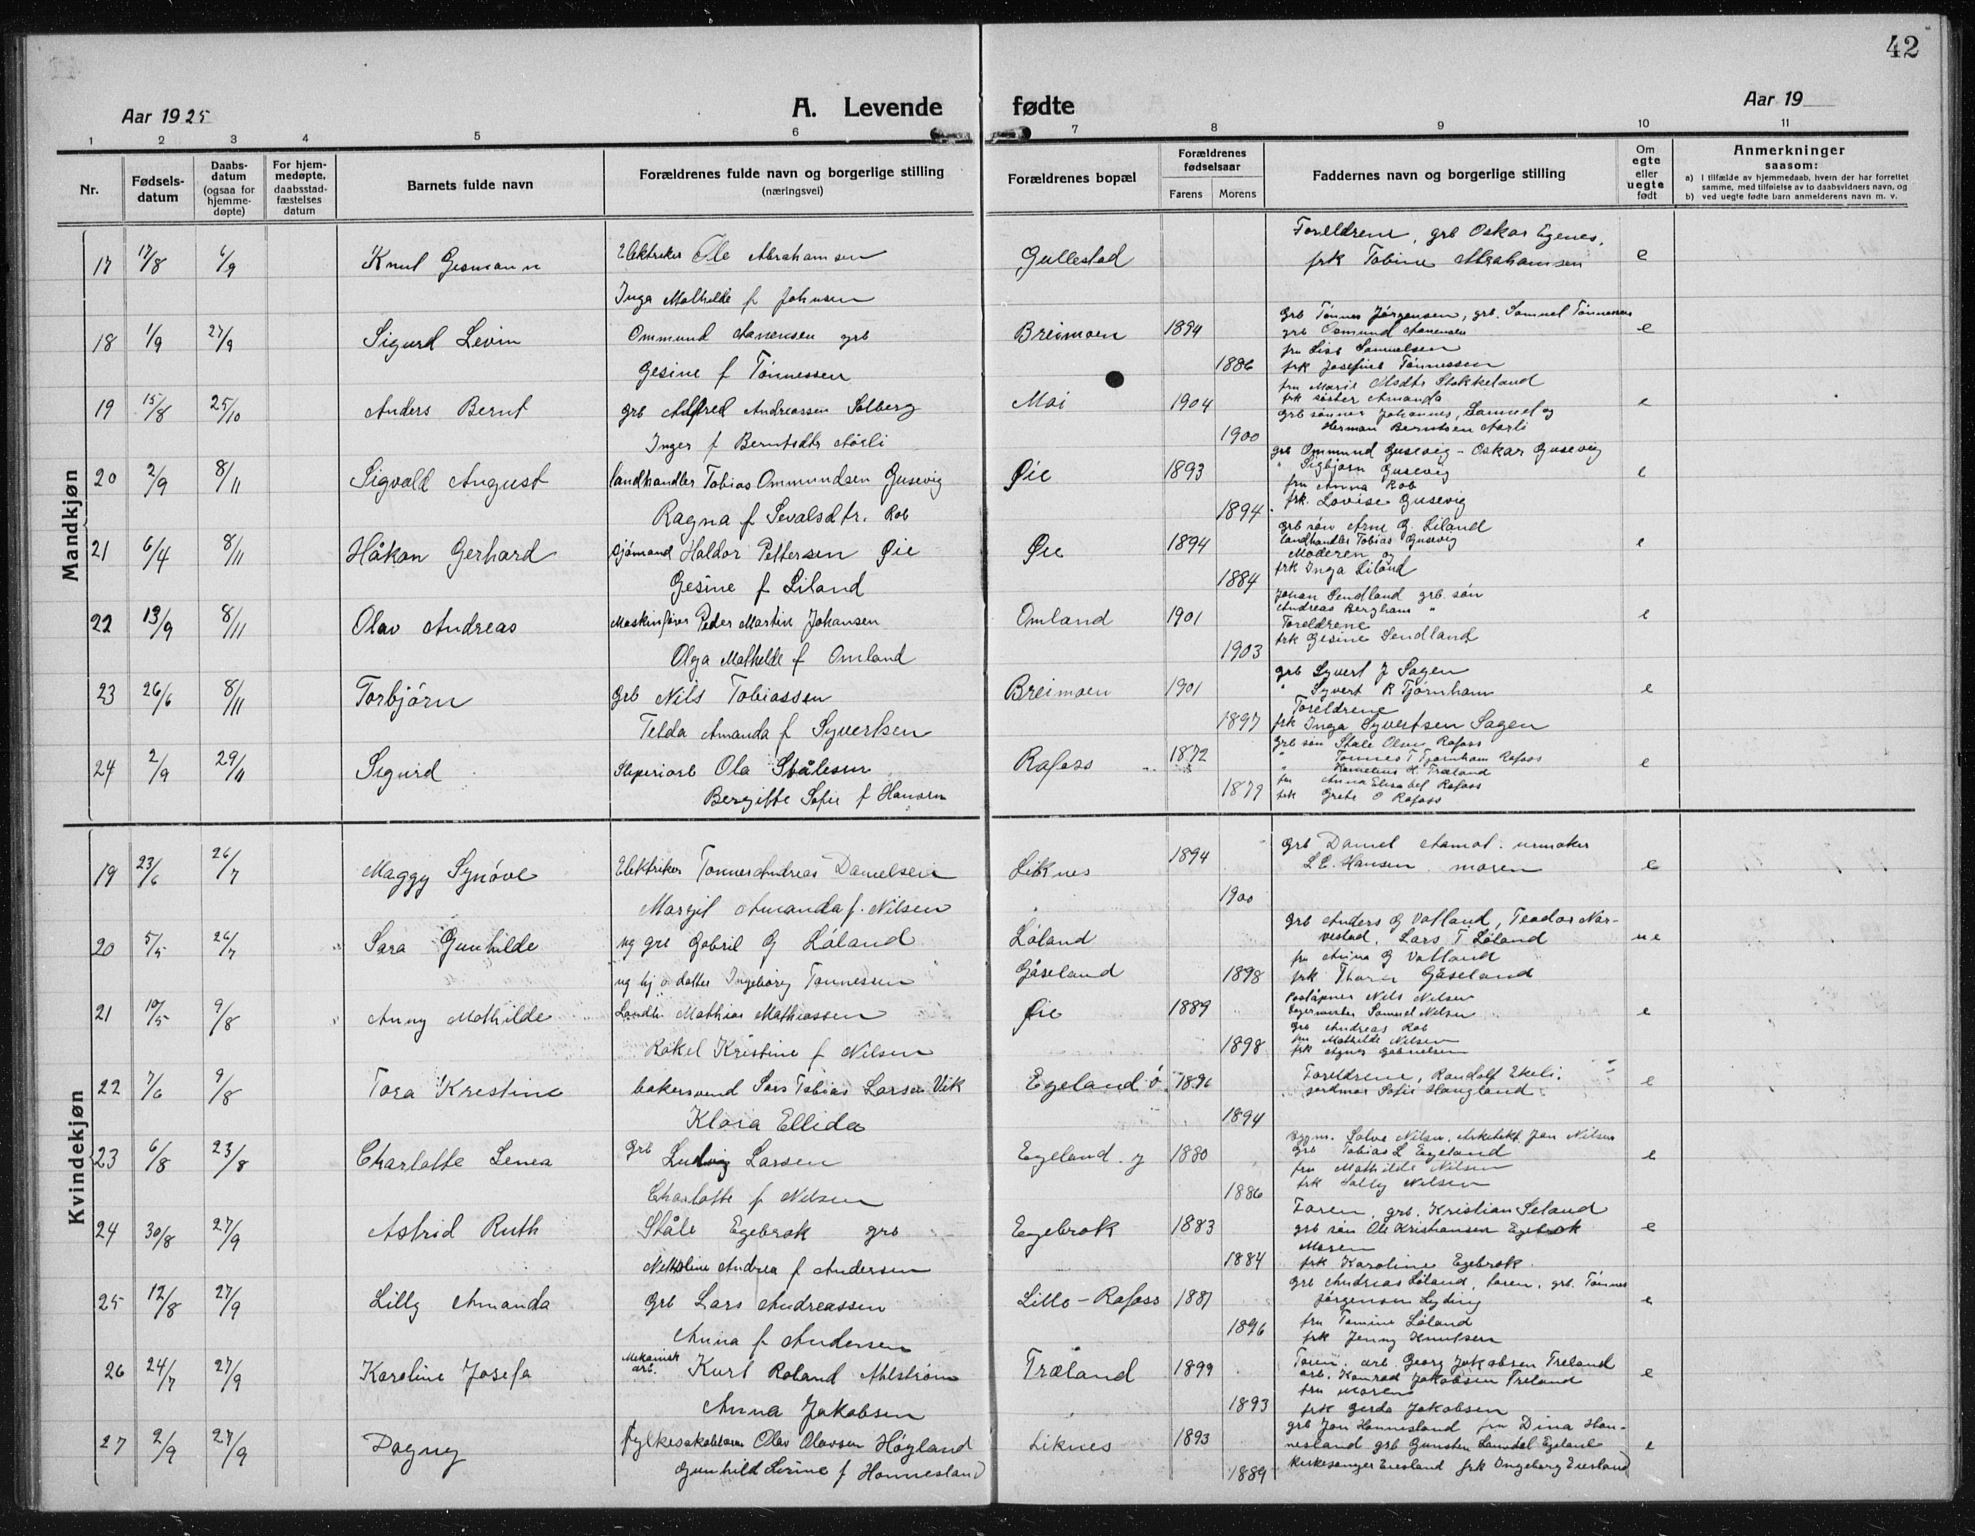 42
Aar 1925
A. Levende fødte
Aar 19
1 2 3 4 5 6 7 8 9 10 11
Nr.
Fødsels-
datum
Daabs-
datum
(ogsaa for
hjemme-
døpte)
For hjem-
medøpte,
daabsstad-
fæstelses
datum
Barnets fulde navn
Forældrenes fulde navn og borgerlige stilling
(næringsvei)
Forældrenes bopæl
Forældrenes
fødselsaar
Farens Morens
Faddernes navn og borgerlige stilling
Om
egte
eller
uegte
født
Anmerkninger
saasom:
a) I tilfælde av hjemmedaab, hvem der har forrettet
samme, med tilføielse av to daabsvidners navn, og
b) ved uegte fødte barn anmelderens navn m. v.
Mandkjøn
Foreldrene, grb Oskar Egenes,
17 17/8 6/9 Knut Gesmann Elektriker Ole Abrahamsen Gullestad frk Tobine Abrahamsen e
Inga Mathilde f Johnsen
grb Tønnes Jørgensen, grb. Samuel Tønnessen
18 1/9 27/9 Sigurd Levin Ommund Aanensen grb Breimoen 1894 grb Osmund Aanensen e
fru Lise Samuelsen
Gesine f Tönnessen 1886 frk Josefine Tønnessen
fru Marie Olsdtr Stokkeland
19 15/8 25/10 Anders Bernt grb Alfred Andreassen Solberg Moi 1904 frk søster Amanda e
grb sønner Johannes, Samuel og
Inger f Berntsdtr Aasli 1900 Herman Berntsen Aasli
grb Ommund Gusevig - Oskar Gusevig
20 2/9 8/11 Sigvald August landhandler Tobias Ommundsen Gusevig Øie 1893 " Sigbjørn Gusevig e
fru Anna Rob
Ragna f Sevalsdtr. Rob 1894 frk. Lovise Gusevig
grb søn Arne G. Liland
21 6/4 8/11 Håkon Gerhard sjömand Haldor Pettersen Øie Øie 1894 landhandler Tobias Gusevig e
Moderen og
Gesine f Liland 1884 frk Inga Liland
Johan Sendland grb. søn
22 13/9 8/11 Olav Andreas Maskinfører Peder Martin Johansen Omland 1901 Andreas Bergham " e
Foreldrene
Olga Mathilde f Omland 1903 frk Gesine Sendland
grb Syvert J Sagen
23 26/6 8/11 Torbjörn grb Nils Tobiassen Breimoen 1901 " Syvert R Tjørnham e
Foreldrene
Telda Amanda f Syvertsen 1897 frk Inga Syvertsen Sagen
grb søn Ståle Olsen Rafoss
24 2/9 29/11 Sigurd Sliperiarb Ola Stålesen Rafoss 1872 " Tønnes T Tjørnham Rafoss e
" Kornelius K. Træland
fru Anna Elisabet Rafoss
Bergitte Sofie f Hansen 1879 frk Grete O Rafoss
Kvindekjøn
19 23/6 26/7 Maggy Synöve Elektriker Tönnes Andreas Danielsen Liknes 1894 grb Daniel Aamot. urmaker e
L.E. Hansen moren
Margit Amanda f. Nilsen 1900
grb Anders G Vatland, Teodor Nar-
20 5/5 26/7 Sara Gunhilde ug grb Gabril G Löland Löland vestad, Lars T Löland ue
fru Anna G Vatland
ug hj o datter Ingeborg Tønnessen Gåseland 1898 frk Thora Gåseland
Poståpner Nils Nilsen
21 10/5 9/8 Anny Mathilde Landh Mathias Mathiassen Øie 1889 Samuel Nilsen e
grb Andreas Rob
fru Mathilde Nilsen
Rakel Kristine f Nilsen 1898 frk Agnes Gabrielsen
22 7/6 9/8 Tora Kristine bakersvend Lars Tobias Larsen Vik Egeland ø 1896 Foreldrene, Randolf Ekeli. e
jordmor Sofie Haugland
Klara Ellida 1894
Bygm. Salve Nilsen. Arkitekt Jan Nilsen
23 6/8 23/8 Charlotte Lenea Grb Ludvig Larsen Egeland y 1880 grb Tobias L Egeland e
fru Mathilde Nilsen
Charlotte f Nilsen 1886 frk Nilsen
Faren, grb. Kristian Seland
24 30/8 27/9 Astrid Ruth Ståle Egebrok grb Egebrok 1883 grb søn Ole Kristiansen Egebrok e
Moren
Andrea f Andersen 1884 frk Karoline Egebrok
grb Andreas Løland, faren, grb. Tønnes
25 12/8 27/9 Lilly Amanda Grb Lars Andreassen Lillo-Rafoss 1887 Jørgensen Lyding e
fru Tomine Løland
Anna f Andersen 1896 frk Jenny Knutsen
26 24/7 27/9 Karoline Josefa Mekanisk arb. Kurt Roland Ahlström Træland 1899 arb Georg Jakobsen Treland e
arb. Konrad Jakobsen Treland
fru moren
Anna Jakobsen 1893 frk Gerda Jakobsen
grb Jon Hannesland fru Dina Han-
27 2/9 27/9 Dagny fylkesskoklærer Olav Olavsen Høyland Liknes 1893 nesland grb Gunsten Egeland e
Gunhild Serine f Hannesland 1889 Kirkesanger Eiesland frk Ingeborg Eiesland